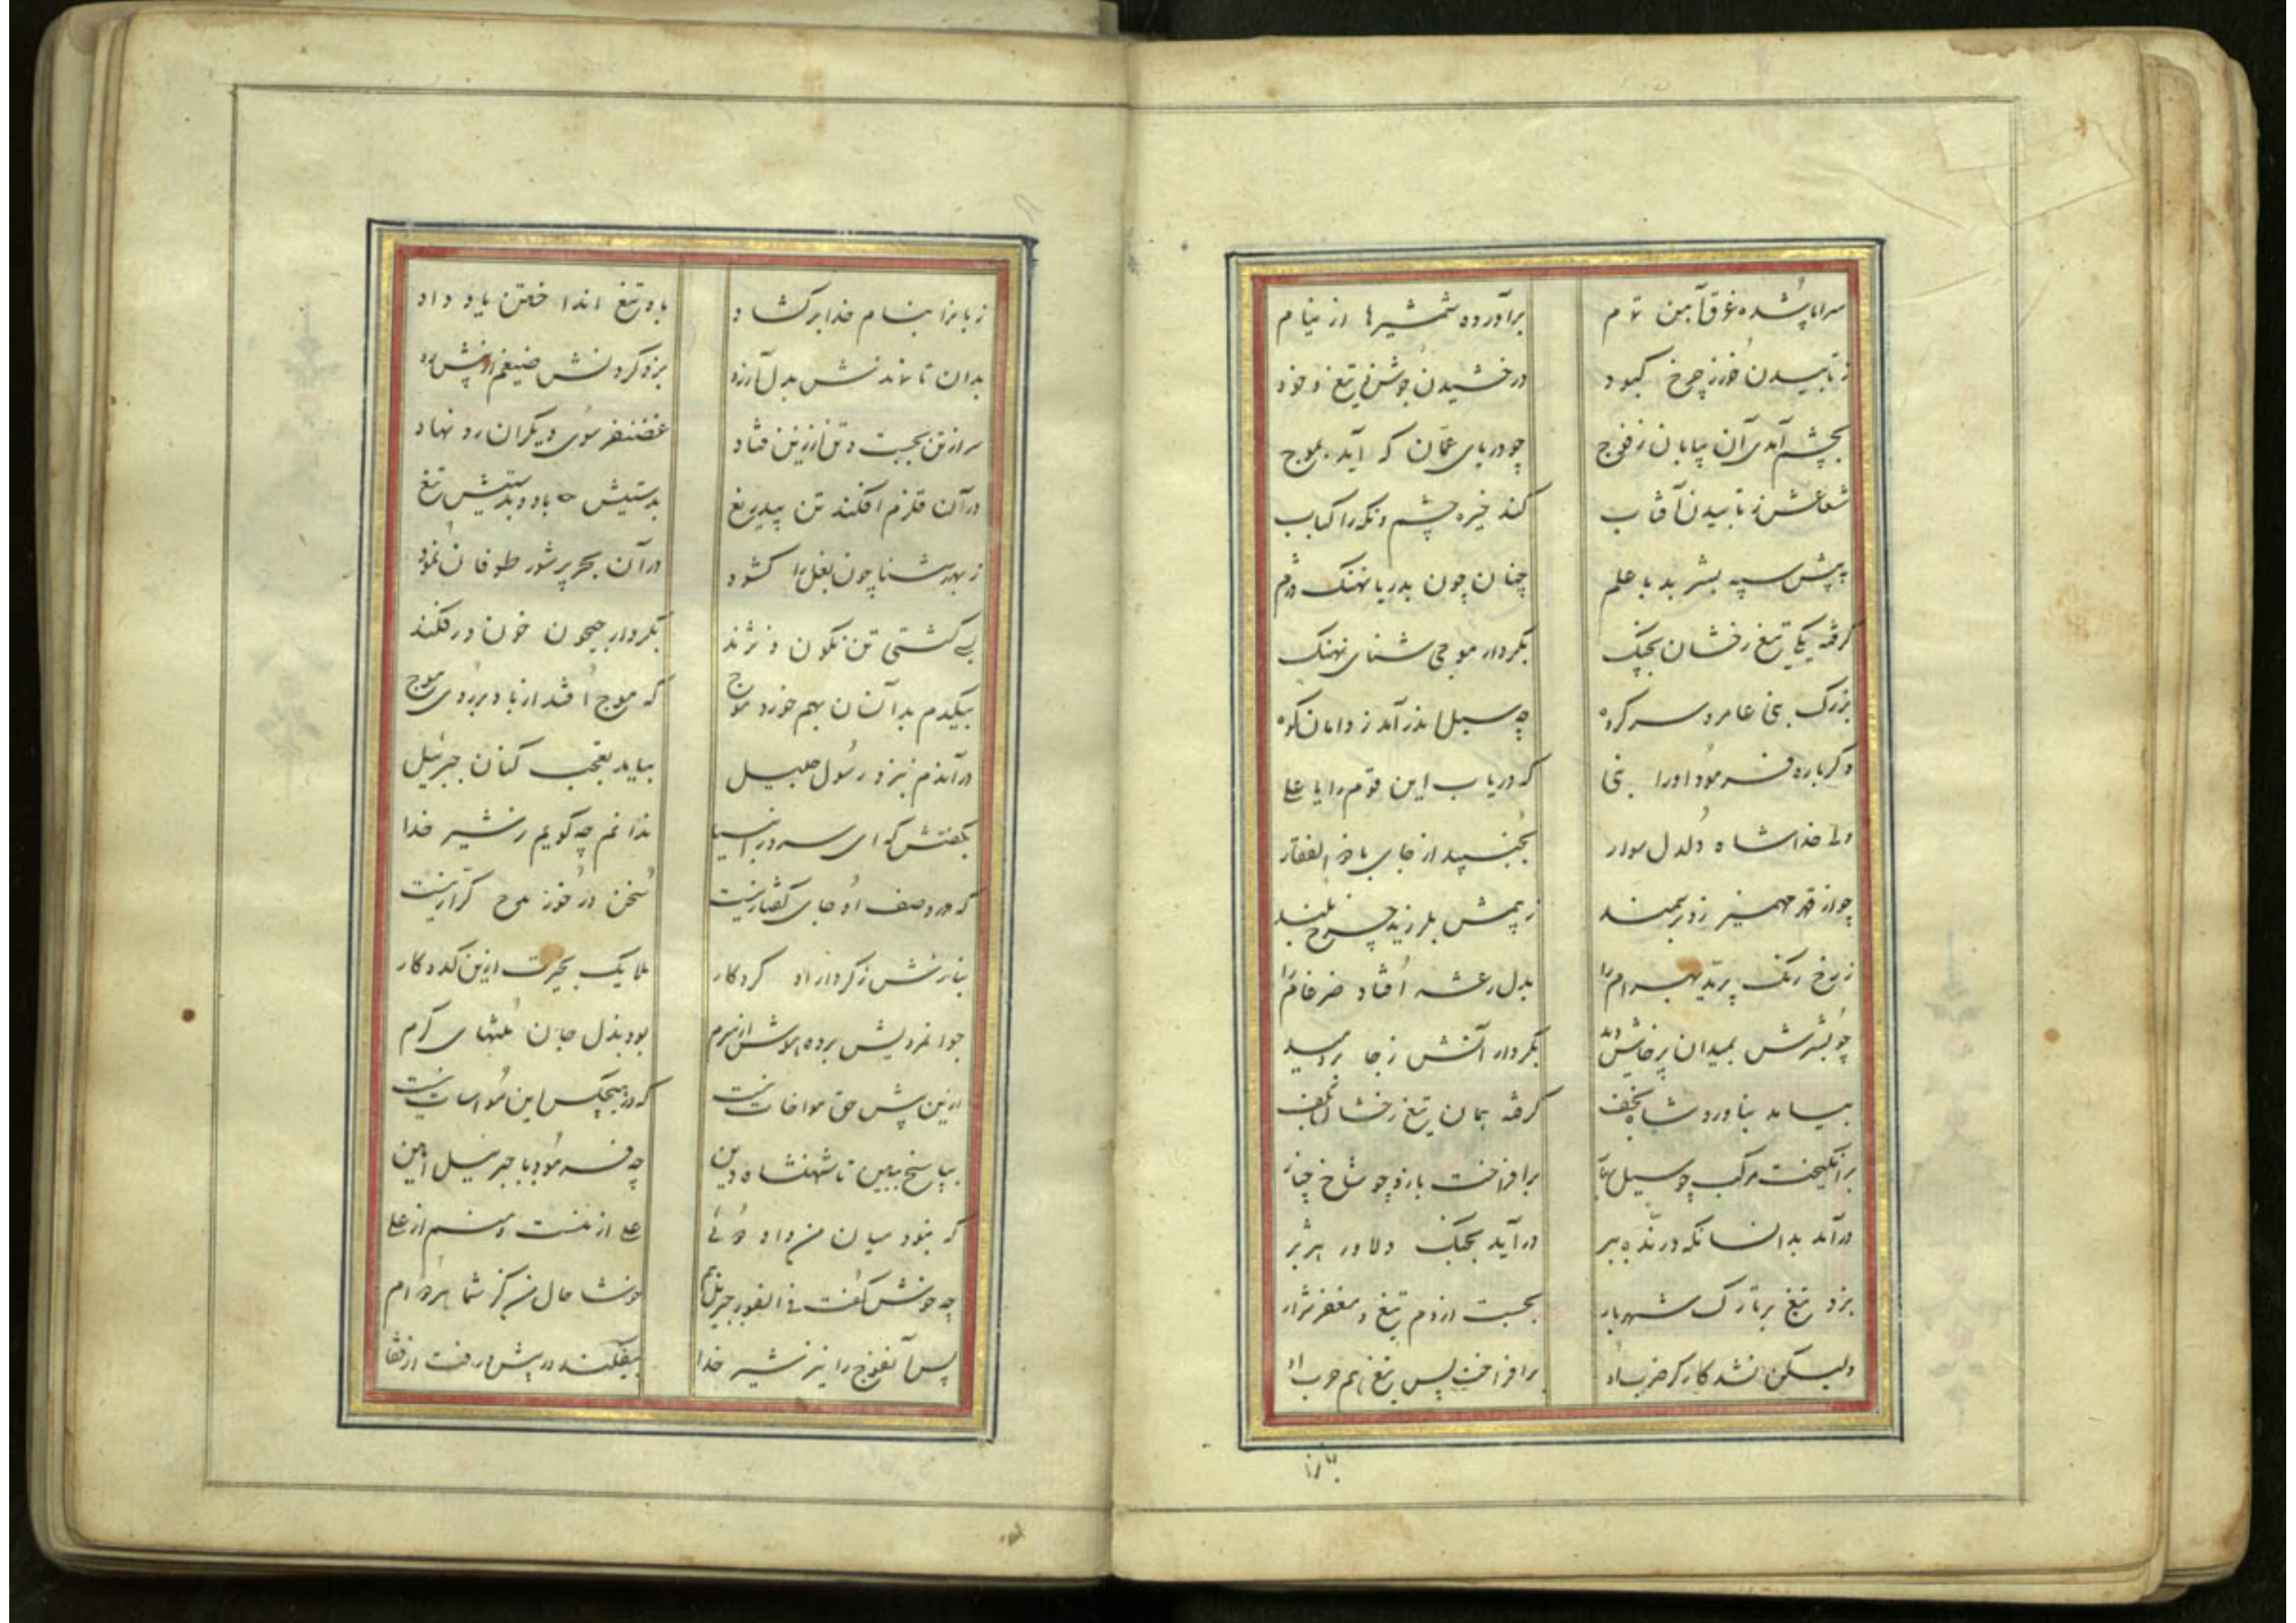 سراپا شده غرق آهن تمام برآورده شمشیرها از نیام
ز تابیدن خور ز چرخ کبود درخشیدن جوشن و تیغ و خود
بچشم آمدی آن بیابان ز فوج چو دریای عمّان که آید بموج
شعاعش ز تابیدن آفتاب کند خیره چشم و نکه را کباب
به پیش سپه بشر بد با علم چنان چون بدریا نهنک دژم
کرفته یکی تیغ رخشان بچنک بکردار موجی شنای نهنک
بزرک بنی عامر و سرکروه چه سیل اندر آمد ز دامان کوه
دکرباره فرمود او را نبی که دریاب این قوم را یا علی
ولی خدا شاه دلدل سوار بجنبید از جای با ذوالفقار
چو از قهر مهمیز زد بر سمند ز بیمش بلرزید چرخ بلند
ز رخ رنک پرید بهرام را بدل رعشه افتاد ضرغام را
چو بشرش بمیدان پرخاش دید بکردار آتش ز جا بردمید
بیامد بناورد شاه نجف کرفته همان تیغ رخشان بکف
برانکیخت مرکب چو سیل برافراخت بازو چو شاخ چنار
درآمد بدانسانکه درنده ببر درآید بجنک دلاور هژبر
بزد تیغ بر تارک شهریار بجست از دم تیغ و مغفر شرار
ولیکن نشد کارکر ضرب او برافراخت پس تیغ هم حرب او
زبانرا بنام خدا برکشاد باو تیغ انداختن یاد داد
بدان تا نماندش بدل آرزو بزد کردنش ضیغم از پیش رو
سر از تن بجست و تن از زین فتاد غضنفر سوی دیکران رو نهاد
در آن قلزم افکند تن بیدریغ بدستیش باد و بدستیش تیغ
ز بهر شنا چون بغل را کشود در آن بحر پرشور طوفان نمود
بی کشتی تن نکون و نژند بکردار جیحون خون درفکند
بیکدم بدانسان بهم خورد فوج که موج افتد از باد بر روی موج
در آندم بنزد رسول جلیل بیامد تعجب کنان جبرئیل
بکفتش که ای سرور انبیا ندانم چه کویم ز شیر خدا
که در وصف او جای کفتار نیست سخن در خور مدح کرار نیست
بنازش ز کردار او کردکار ملایک بحیرت ازین کیرودار
جوانمردیش برده هوش از سرم بود بذل جان منتهای کرم
ازین بیش حق مواخات نیست که در هیچکس این مواسات نیست
بپاسخ ببین تا شهنشاه دین چه فرمود با جبرئیل امین
که نبود میان من و او دوئی علی از منست و منم از علی
چه خوش کفت فی الفور جبریل هم خوشا حال من کز شما هر دو ام
پس آنفوج را نیز شیر خدا بیفکند در پیش و رفت از قفا